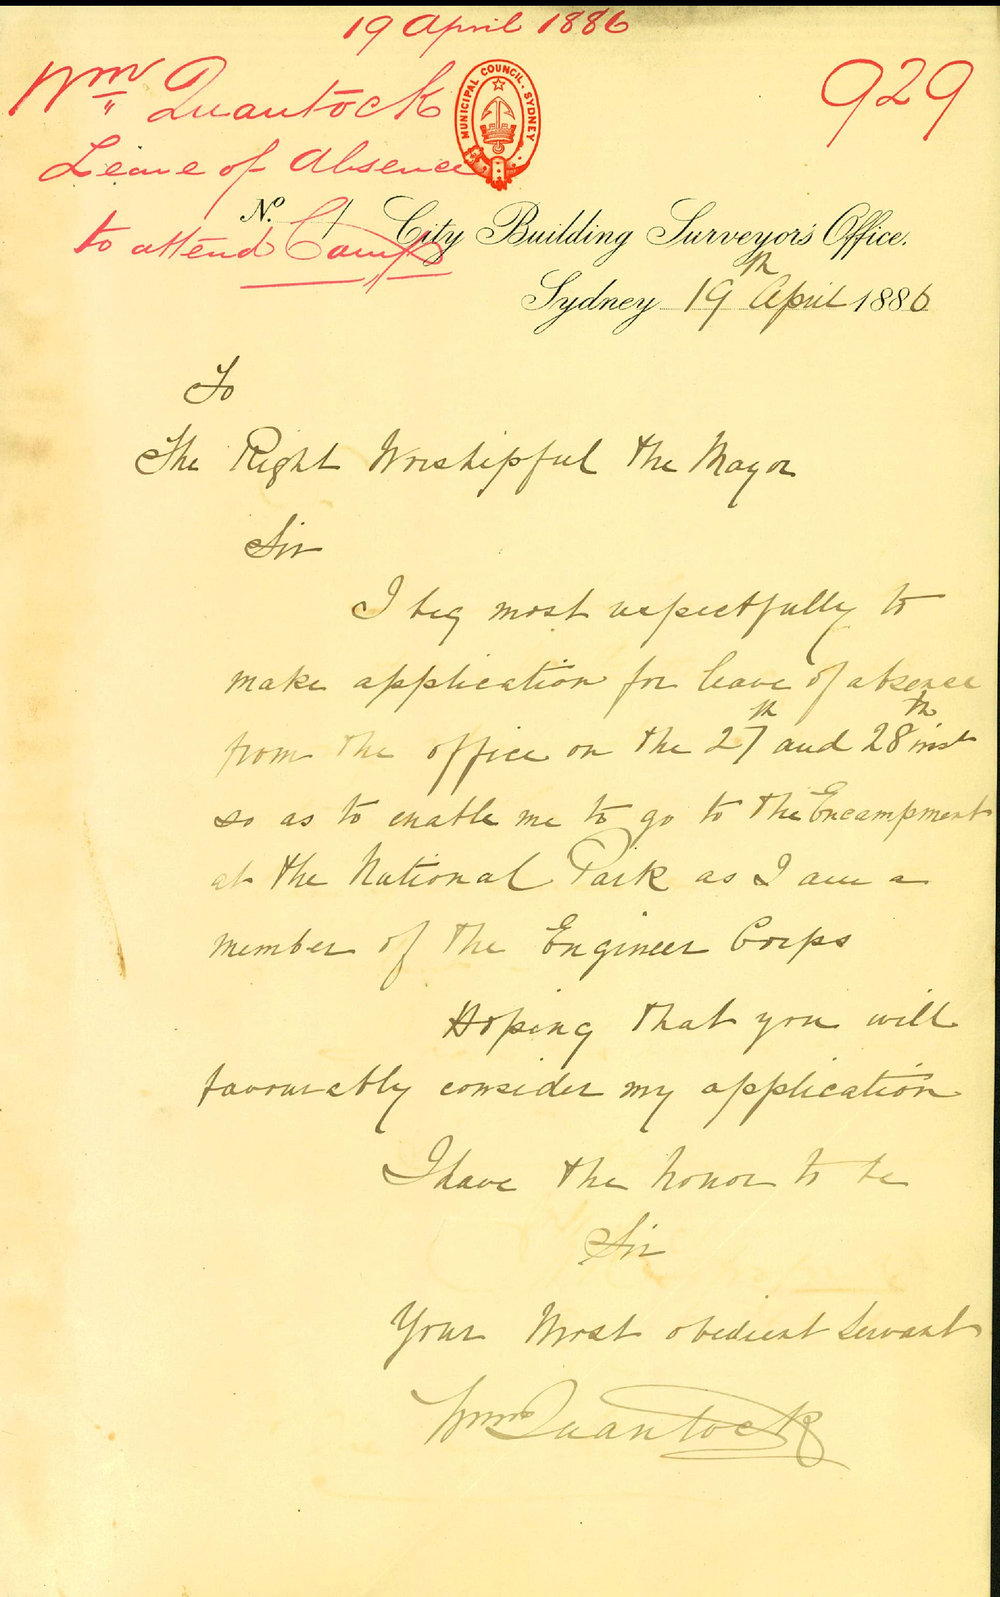 19 April 1886
Wm Quantock
929
Leave of Absence
to attend Camp
MUNICIPAL COUNCIL. SYDNEY
No. City Building Surveyor's Office.
Sydney 19th April 1886
To
The Right Worshipful the Mayor
Sir
I beg most respectfully to
make application for leave of absence
from the office on the 27th and 28th inst
so as to enable me to go to the Encampment
at the National Park as I am a
member of the Engineer Corps
Hoping that you will
favourably consider my application
I have the honor to be
Sir
Your Most obedient Servant
Wm Quantock